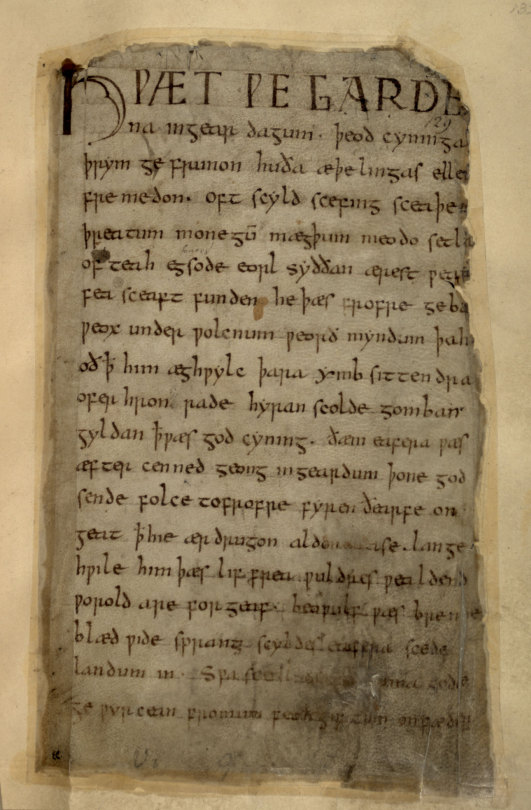 HǷÆT ǷE GARDE
na ingear dagum. þeod cyninga
þrym ge frunon huða æþelingas elle
fremedon. oft scyld scefing sceaþe
þreatum monegū mægþum meodo setla
of teah egsode eorl syððan ærest ƿe
fea sceaft funden he þæs frofre geba
ƿeox under ƿolcnum ƿeorð myndum þah
oð ꝥ him æghƿylc þara ymb sittendra
ofer hron rade hyran scolde gomban
gyldan ꝥ ƿæs god cyning. ðæm eafera ƿæs
æfter cenned geong ingeardum þone god
sende folce tofrofre fyren ðearfe on
geat ꝥ hie ær drugon aldor ase. lange
hƿile him þæs lif frea ƿuldres ƿealdend
ƿorold are forgeaf. beoƿulf ƿæs breme
blæd ƿide sprang scyldes eafera scede
landum in. Sƿa gode
ge ƿyrcean fromum feoh giftum on fæder